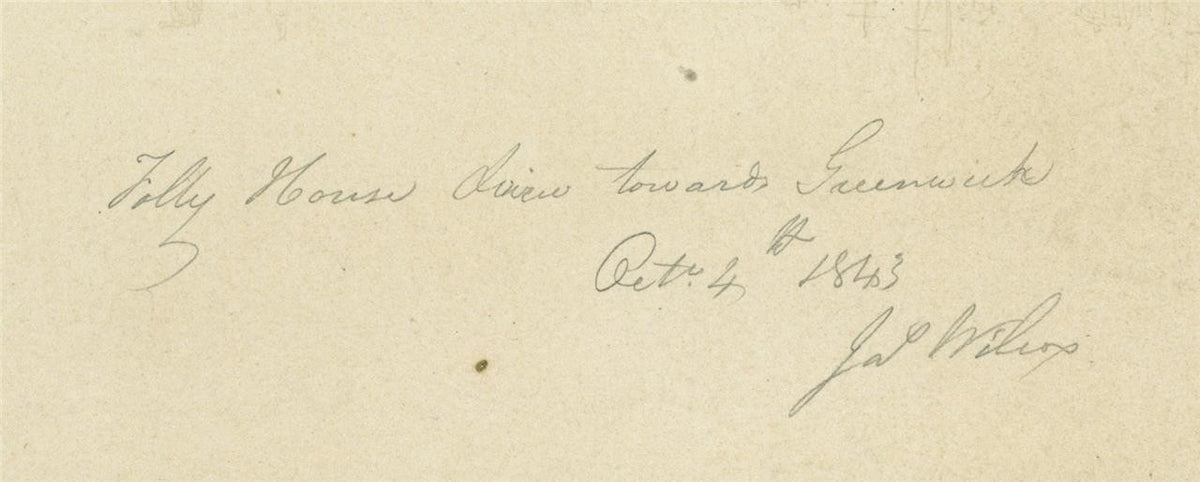 Folly House View towards Greenwich
Octr. 4th 1843
Jas Wilcox